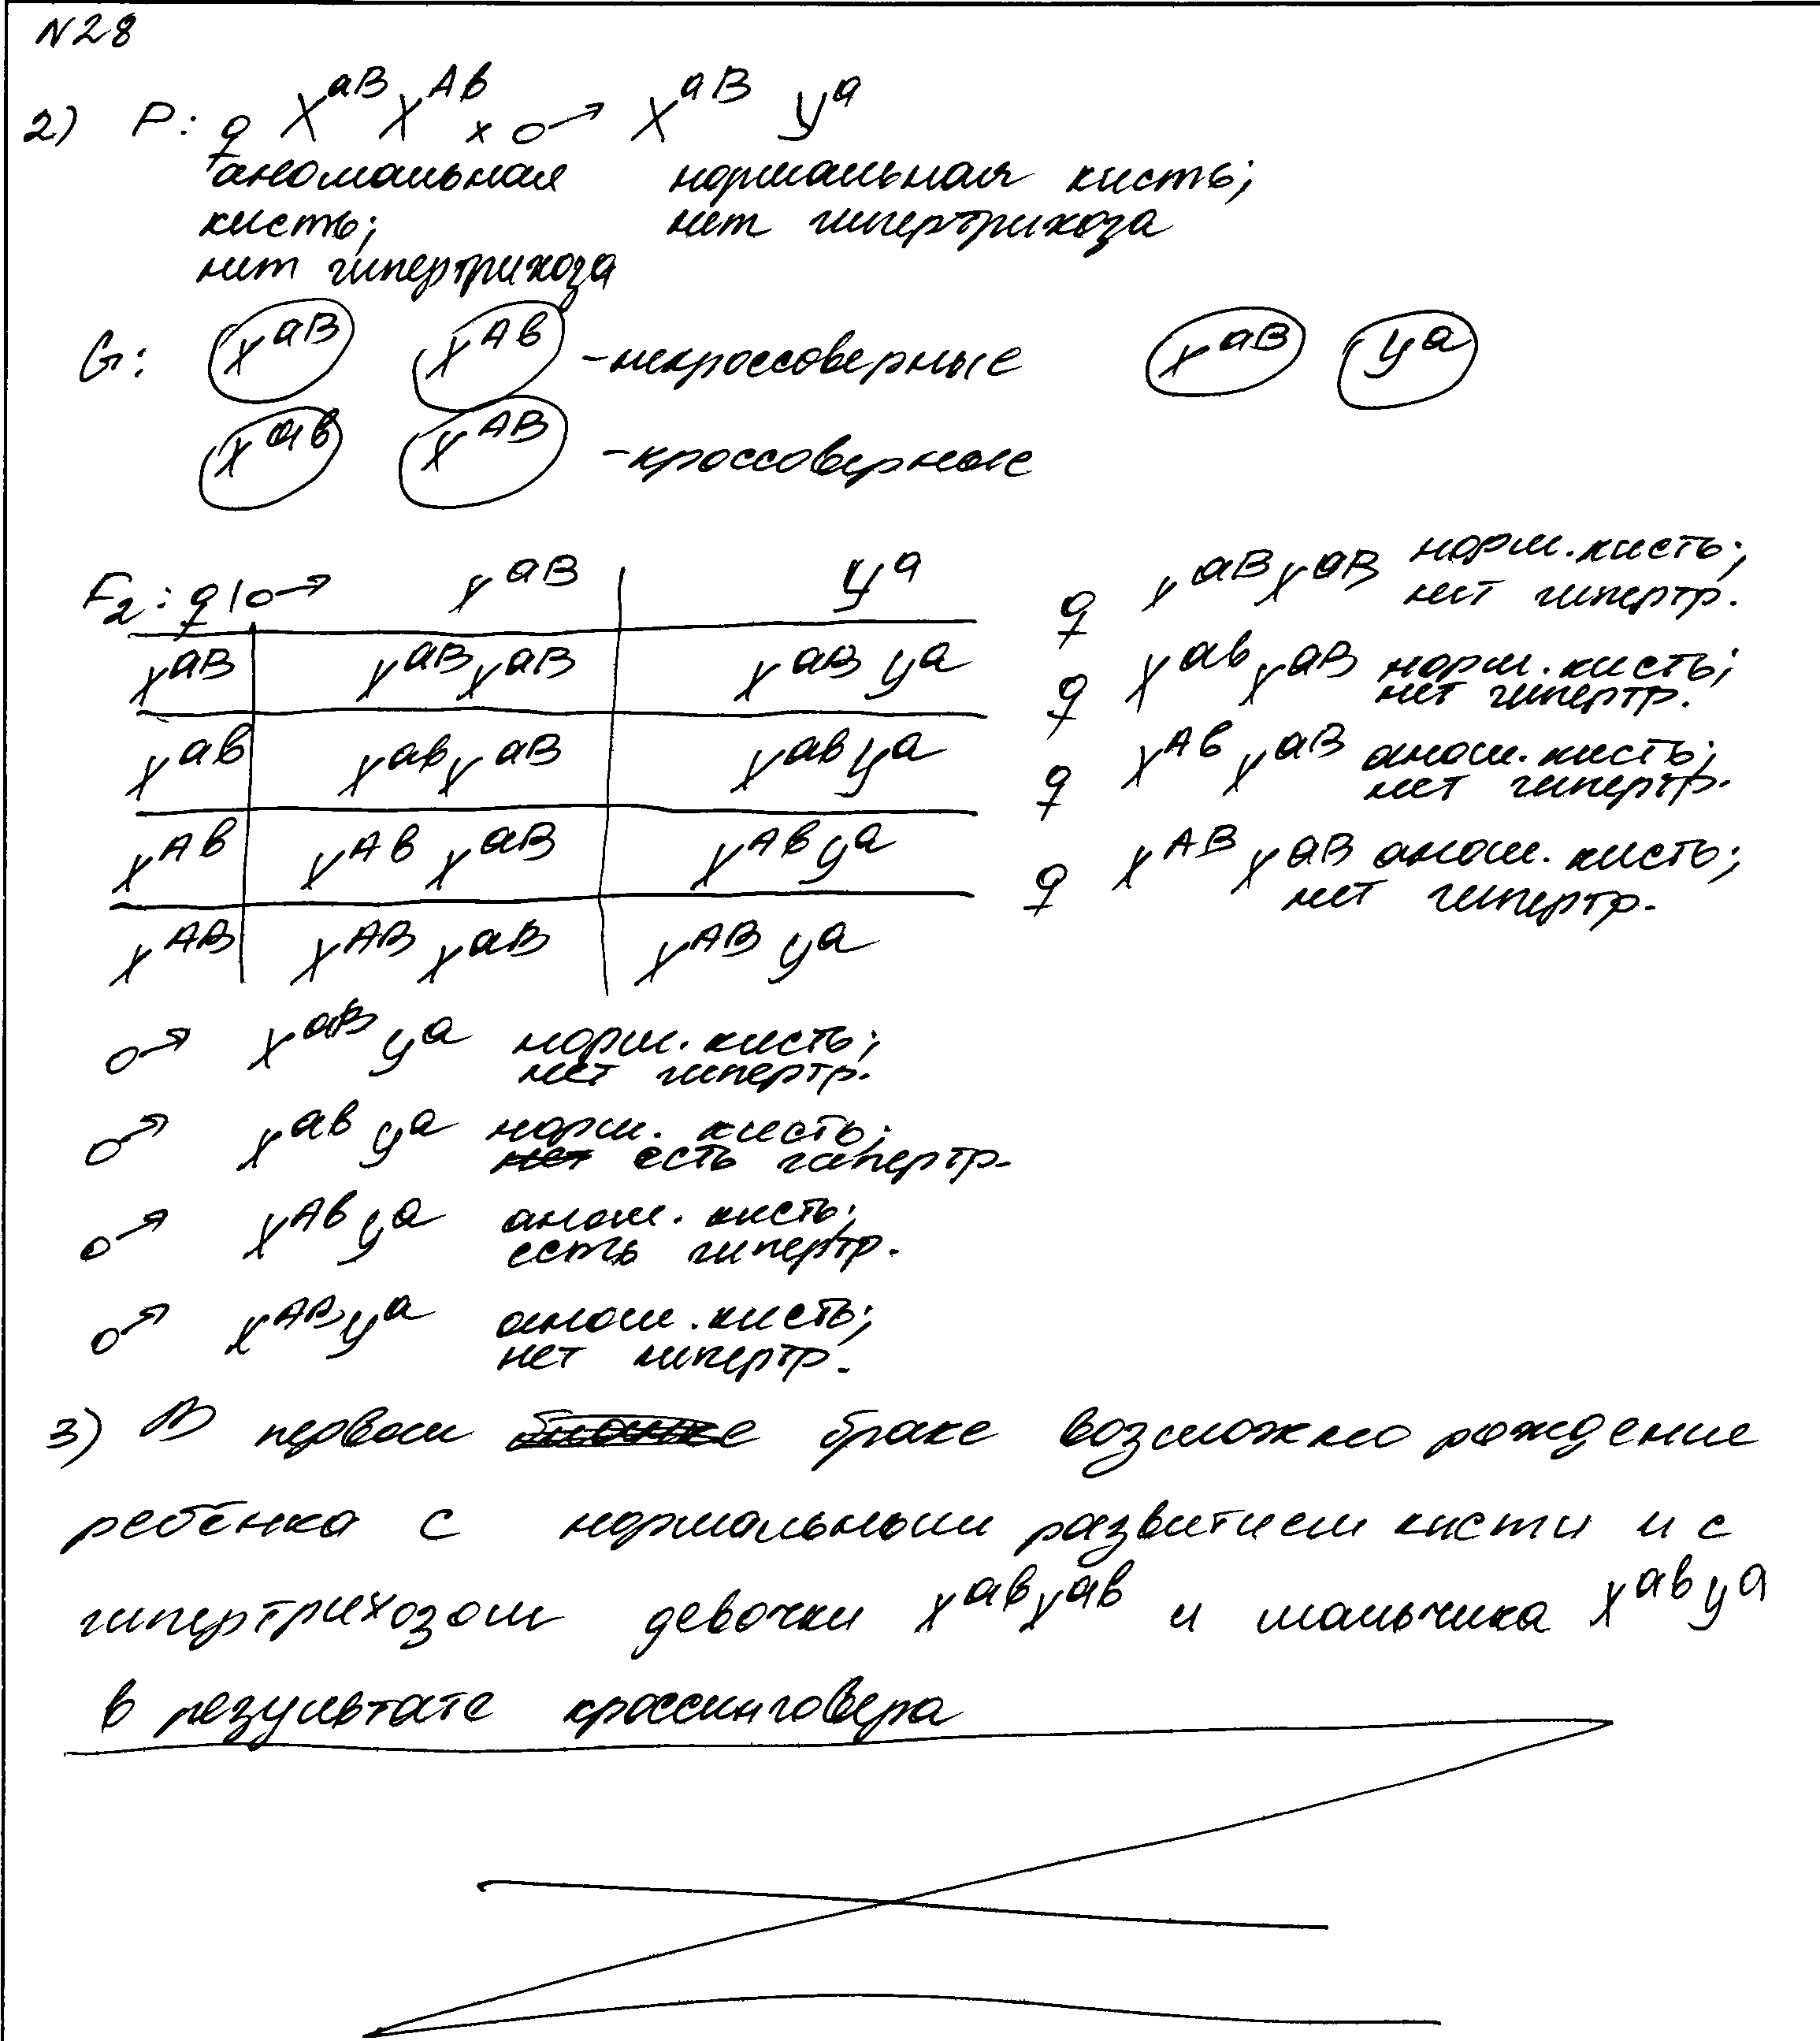 N28
2) P: ♀ X^aB X^Ab x ♂ X^aB У^a
аномальная нормальная кисть;
кисть; нет гипертрихоза
нет гипертрихоза
G: X^aB X^Ab - некроссоверные X^aB У^a
X^ab X^AB - кроссоверные
F2: ♀|♂ X^aB У^a
X^aB X^aB X^aB X^aB У^a
X^ab X^ab X^aB X^ab У^a
X^Ab X^Ab X^aB X^Ab У^a
X^AB X^AB X^aB X^AB У^a
♀ X^aB X^aB норм. кисть;
нет гипертр.
♀ X^ab X^aB норм. кисть;
нет гипертр.
♀ X^Ab X^aB аном. кисть;
нет гипертр.
♀ X^AB X^aB аном. кисть;
нет гипертр.
♂ X^aB У^a норм. кисть;
нет гипертр.
♂ X^ab У^a норм. кисть;
нет есть гипертр.
♂ X^Ab У^a аном. кисть;
есть гипертр.
♂ X^AB У^a аном. кисть;
нет гипертр.
3) В первом браке возможно рождение
ребёнка с нормальным развитием кисти и с
гипертрихозом девочки X^ab X^ab и мальчика X^ab У^a
в результате кроссинговера